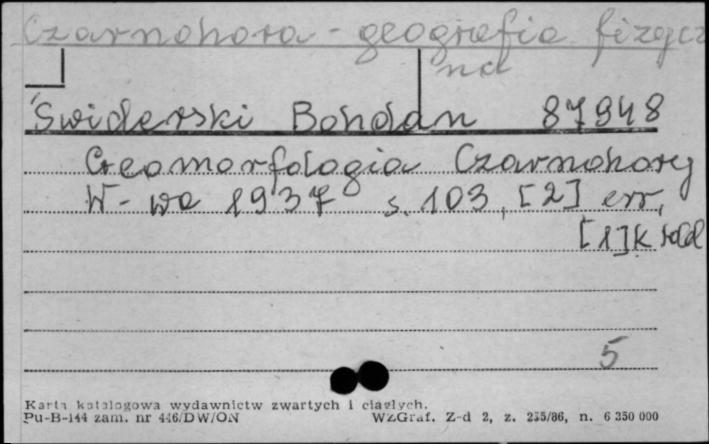 Czarnohora - geografia fizycz
na
Świderski Bohdan 87948
Geomorfologia Czarnohory
W-wa 1937 s. 103, [2] err,
[1] k tabl
5
Karta katalogowa wydawnictw zwartych i ciągłych.
Pu-B-144 zam. nr 446/DW/ON WZGraf. Z-d 2, z. 235/86, n. 6 350 000